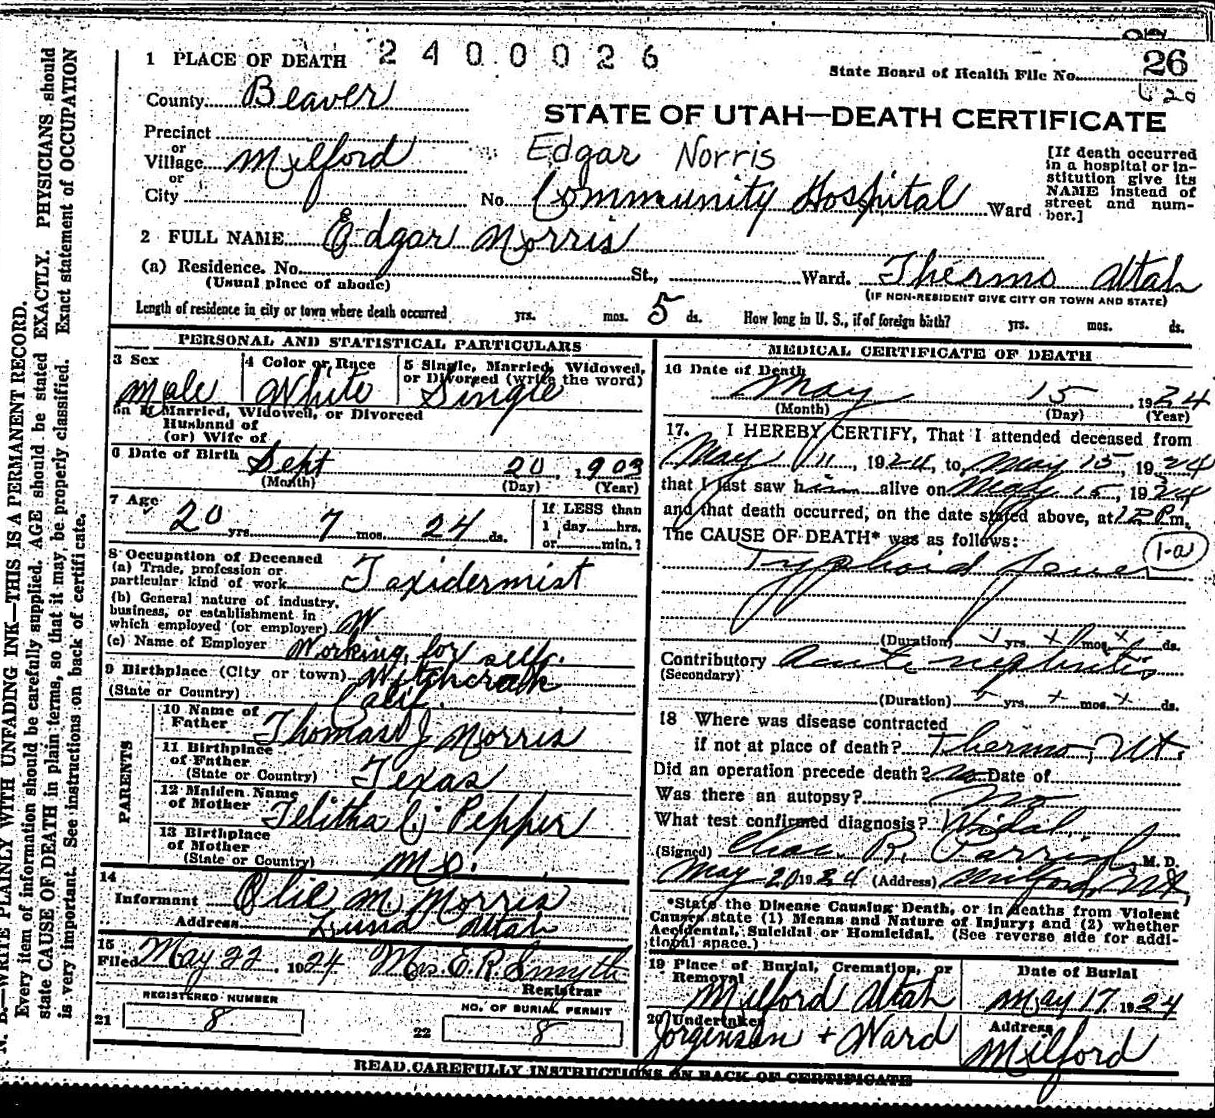 2400026
1 PLACE OF DEATH
State Board of Health File No. 26
County Beaver
STATE OF UTAH—DEATH CERTIFICATE
Precinct
or
Village Milford
or
City
Edgar Norris
No. Community Hospital Ward
[If death occurred
in a hospital or in-
stitution give its
NAME instead of
street and num-
ber.]
2 FULL NAME Edgar Norris
(a) Residence. No. St., Ward. Thermo Utah
(Usual place of abode)
(IF NON-RESIDENT GIVE CITY OR TOWN AND STATE)
Length of residence in city or town where death occurred yrs. mos. 5 ds. How long in U. S., if of foreign birth? yrs. mos. ds.
PERSONAL AND STATISTICAL PARTICULARS
3 Sex Male
4 Color or Race White
5 Single, Married, Widowed,
or Divorced (write the word)
Single
5a If Married, Widowed, or Divorced
Husband of
(or) Wife of
6 Date of Birth Sept 20, 1903
(Month) (Day) (Year)
7 Age 20 yrs. 7 mos. 24 ds.
If LESS than
1 day hrs.
or min.?
8 Occupation of Deceased
(a) Trade, profession or
particular kind of work Taxidermist
(b) General nature of industry,
business, or establishment in
which employed (or employer) W
(c) Name of Employer Working for self.
9 Birthplace (City or town)
(State or Country) Calif.
PARENTS
10 Name of
Father Thomas J Norris
11 Birthplace
of Father
(State or Country) Texas
12 Maiden Name
of Mother Telitha C. Pepper
13 Birthplace
of Mother
(State or Country) Mo.
14
Informant Olie M. Norris
Address Lund Utah
15
Filed May 22, 1924 Mrs. E. R. Smyth
Registrar
REGISTERED NUMBER
21 8
NO. OF BURIAL PERMIT
22 8
MEDICAL CERTIFICATE OF DEATH
16 Date of Death
May 15, 1924
(Month) (Day) (Year)
17. I HEREBY CERTIFY, That I attended deceased from
May 11, 1924, to May 15, 1924
that I last saw him alive on May 15, 1924
and that death occurred, on the date stated above, at 12 P.m.
The CAUSE OF DEATH* was as follows:
1-a
Typhoid fever
(Duration) yrs. mos. ds.
Contributory Acute nephritis
(Secondary)
(Duration) yrs. mos. ds.
18 Where was disease contracted
if not at place of death? Thermo, Ut.
Did an operation precede death? No Date of
Was there an autopsy? No
What test confirmed diagnosis? Widal
(Signed) Chas. R. Parrish M. D.
May 20 1924 (Address) Milford, Ut,
*State the Disease Causing Death, or in deaths from Violent
Causes state (1) Means and Nature of Injury; and (2) whether
Accidental, Suicidal or Homicidal. (See reverse side for addi-
tional space.)
19 Place of Burial, Cremation, or
Removal
Milford Utah
Date of Burial
May 17 1924
20 Undertaker
Jorgensen + Ward
Address
Milford
READ CAREFULLY INSTRUCTIONS ON BACK OF CERTIFICATE
N. B.—WRITE PLAINLY WITH UNFADING INK—THIS IS A PERMANENT RECORD.
Every item of information should be carefully supplied. AGE should be stated EXACTLY. PHYSICIANS should
state CAUSE OF DEATH in plain terms, so that it may be properly classified. Exact statement of OCCUPATION
is very important. See instructions on back of certificate.